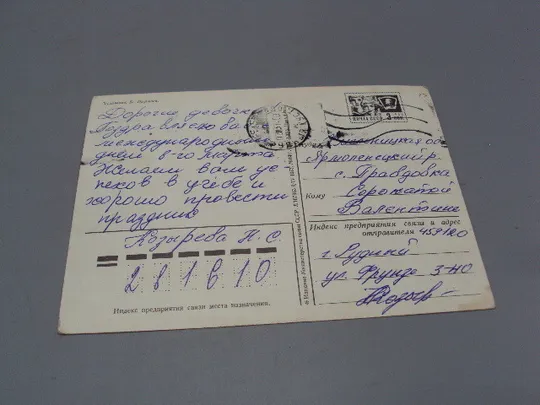 Дорогие девочки!
Поздравляю вас
международным
днем 8-го Марта
Желаем вам ус
пехов в учебе и
хорошо провести
праздник
Козырева Н. С.
281610
Индекс предприятия связи места назначения.
ПОЧТА СССР
обл
Ярмолинецкий р.
с. Правдовка
Кому
Валентине
Индекс предприятия связи и адрес
отправителя 459120
г. Рудный
ул Фрунзе 3-40